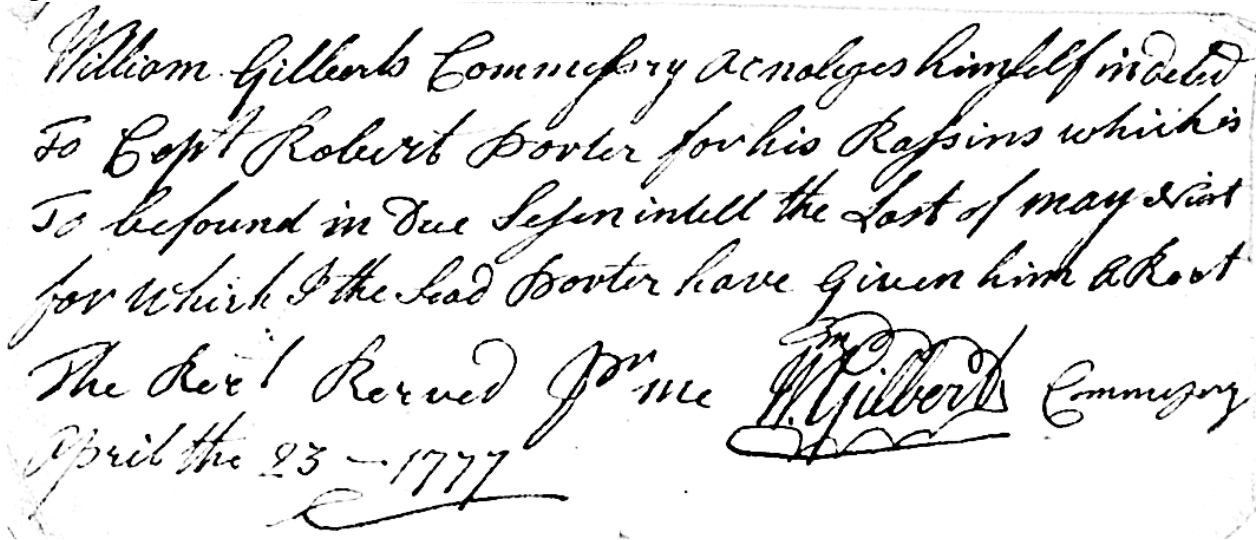 William Gilberts Commessry Acnoleges himself indeted
To Capt Robert Porter for his Rassins which is
To befound in Due Sesen intell the Last of may Next
for which I the Sead Porter have given him a Rect
The Rect Rerved Pr me Wm Gilbert Commesery
April the 23 — 1777